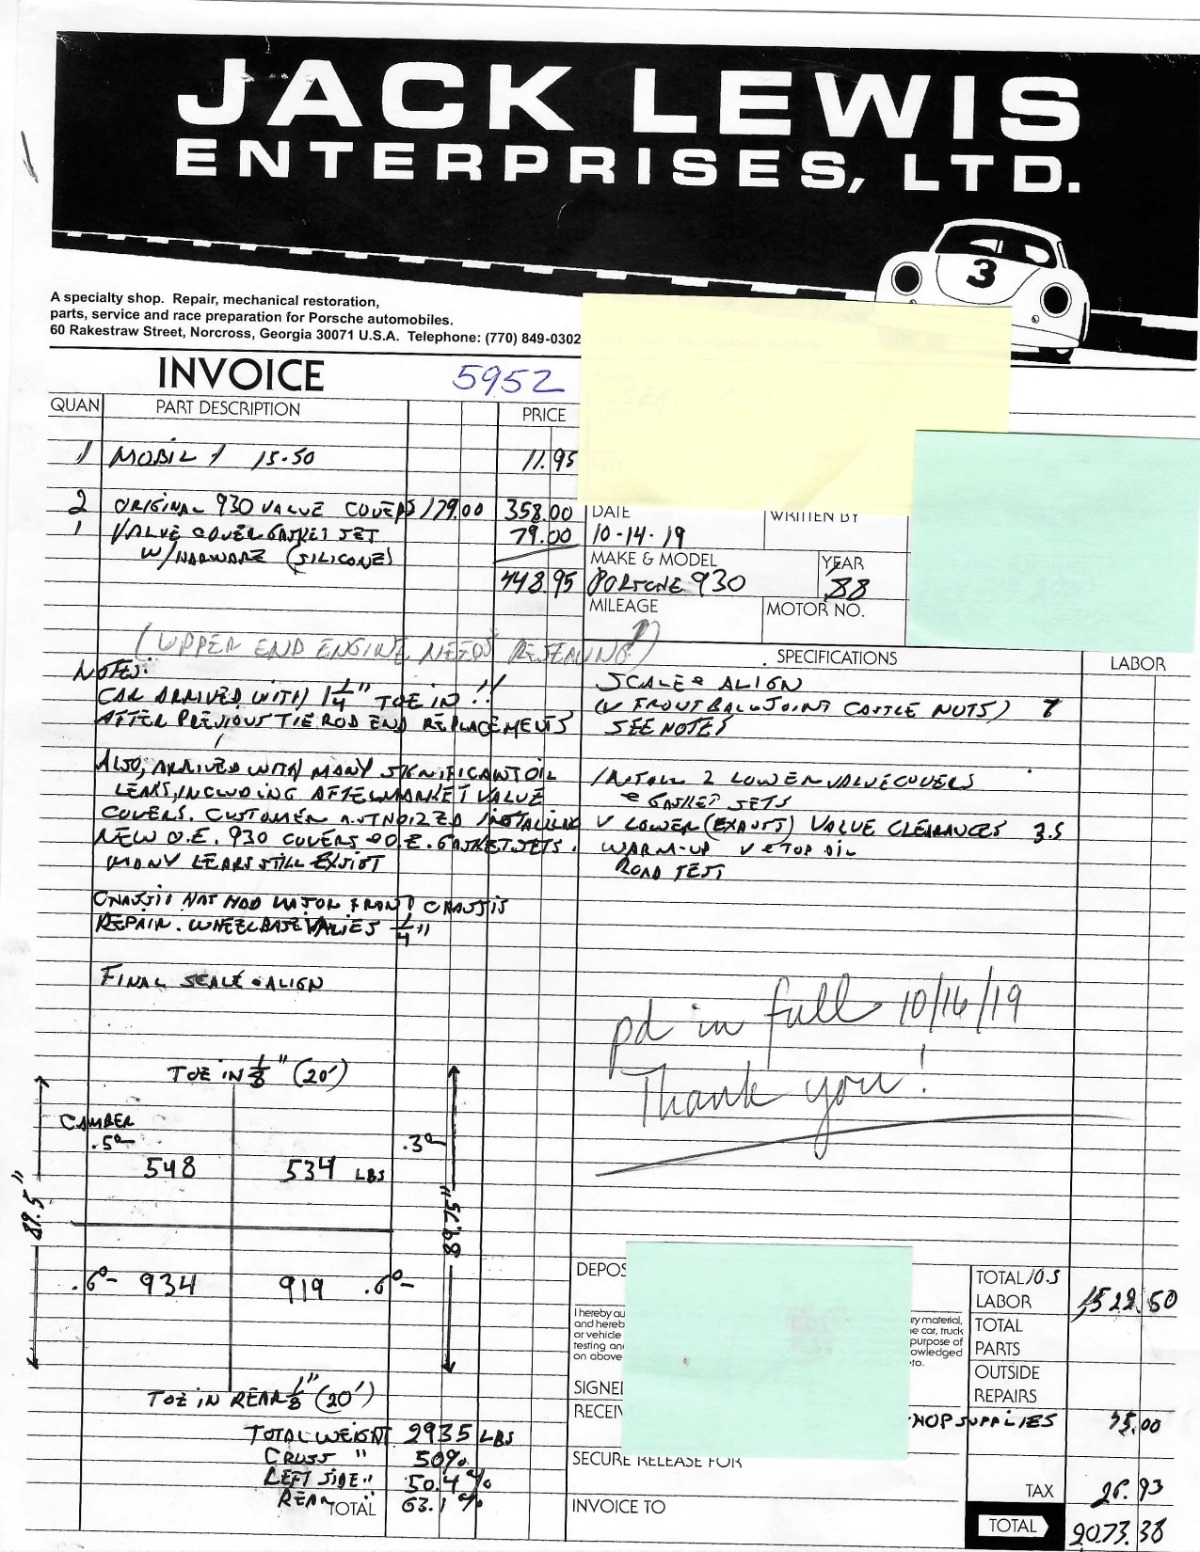 JACK LEWIS
ENTERPRISES, LTD.
3
A specialty shop. Repair, mechanical restoration,
parts, service and race preparation for Porsche automobiles.
60 Rakestraw Street, Norcross, Georgia 30071 U.S.A. Telephone: (770) 849-0302
INVOICE 5952
QUAN PART DESCRIPTION PRICE
1 MOBIL 1 15-50 11.95
2 ORIGINAL 930 VALVE COVERS 179.00 358.00
1 VALVE COVER GASKET SET 79.00
W/HARWARE (SILICONE)
448.95
DATE WRITTEN BY
10-14-19
MAKE & MODEL YEAR
PORSCHE 930 88
MILEAGE MOTOR NO.
(UPPER END ENGINE NEEDS RESEALING)
NOTES:
CAR ARRIVED WITH 1 1/4" TOE IN!!
AFTER PREVIOUS TIE ROD END REPLACEMENTS
ALSO, ARRIVED WITH MANY SIGNIFICANT OIL
LEAKS, INCLUDING AFTERMARKET VALVE
COVERS. CUSTOMER AUTHOIZED INSTALLING
NEW O.E. 930 COVERS & O.E. GASKET SETS.
MANY LEAKS STILL EXSIST
CHASSIS HAS HAD MAJOR FRONT CHASSIS
REPAIR. WHEELBASE VARIES 1/4"
FINAL SCALE & ALIGN
SPECIFICATIONS LABOR
SCALE & ALIGN
(V FRONT BALL JOINT CASTLE NUTS) 7
SEE NOTES
INSTALL 2 LOWER VALVE COVERS
& GASKET SETS
V LOWER (EXAUST) VALVE CLEARANCES 3.5
WARM-UP V & TOP OIL
ROAD TEST
pd in full 10/16/19
Thank you!
TOE IN 1/8" (20')
CAMBER
.5°- .3°-
548 534 LBS
89.5" 89.75"
.6°- 934 919 .6°-
TOE IN REAR 1/8" (20')
TOTAL WEIGHT 2935 LBS
CROSS " 50%
LEFT SIDE " 50.4%
REAR TOTAL 63.1%
DEPOS
I hereby au
and hereb
or vehicle
testing an
on above
ry material,
e car, truck
purpose of
owledged
to.
SIGNE
RECEIV
SECURE RELEASE FOR
INVOICE TO
TOTAL 10.5
LABOR 1522.50
TOTAL
PARTS
OUTSIDE
REPAIRS
HOP SUPPLIES 75.00
TAX 26.93
TOTAL 2073.38